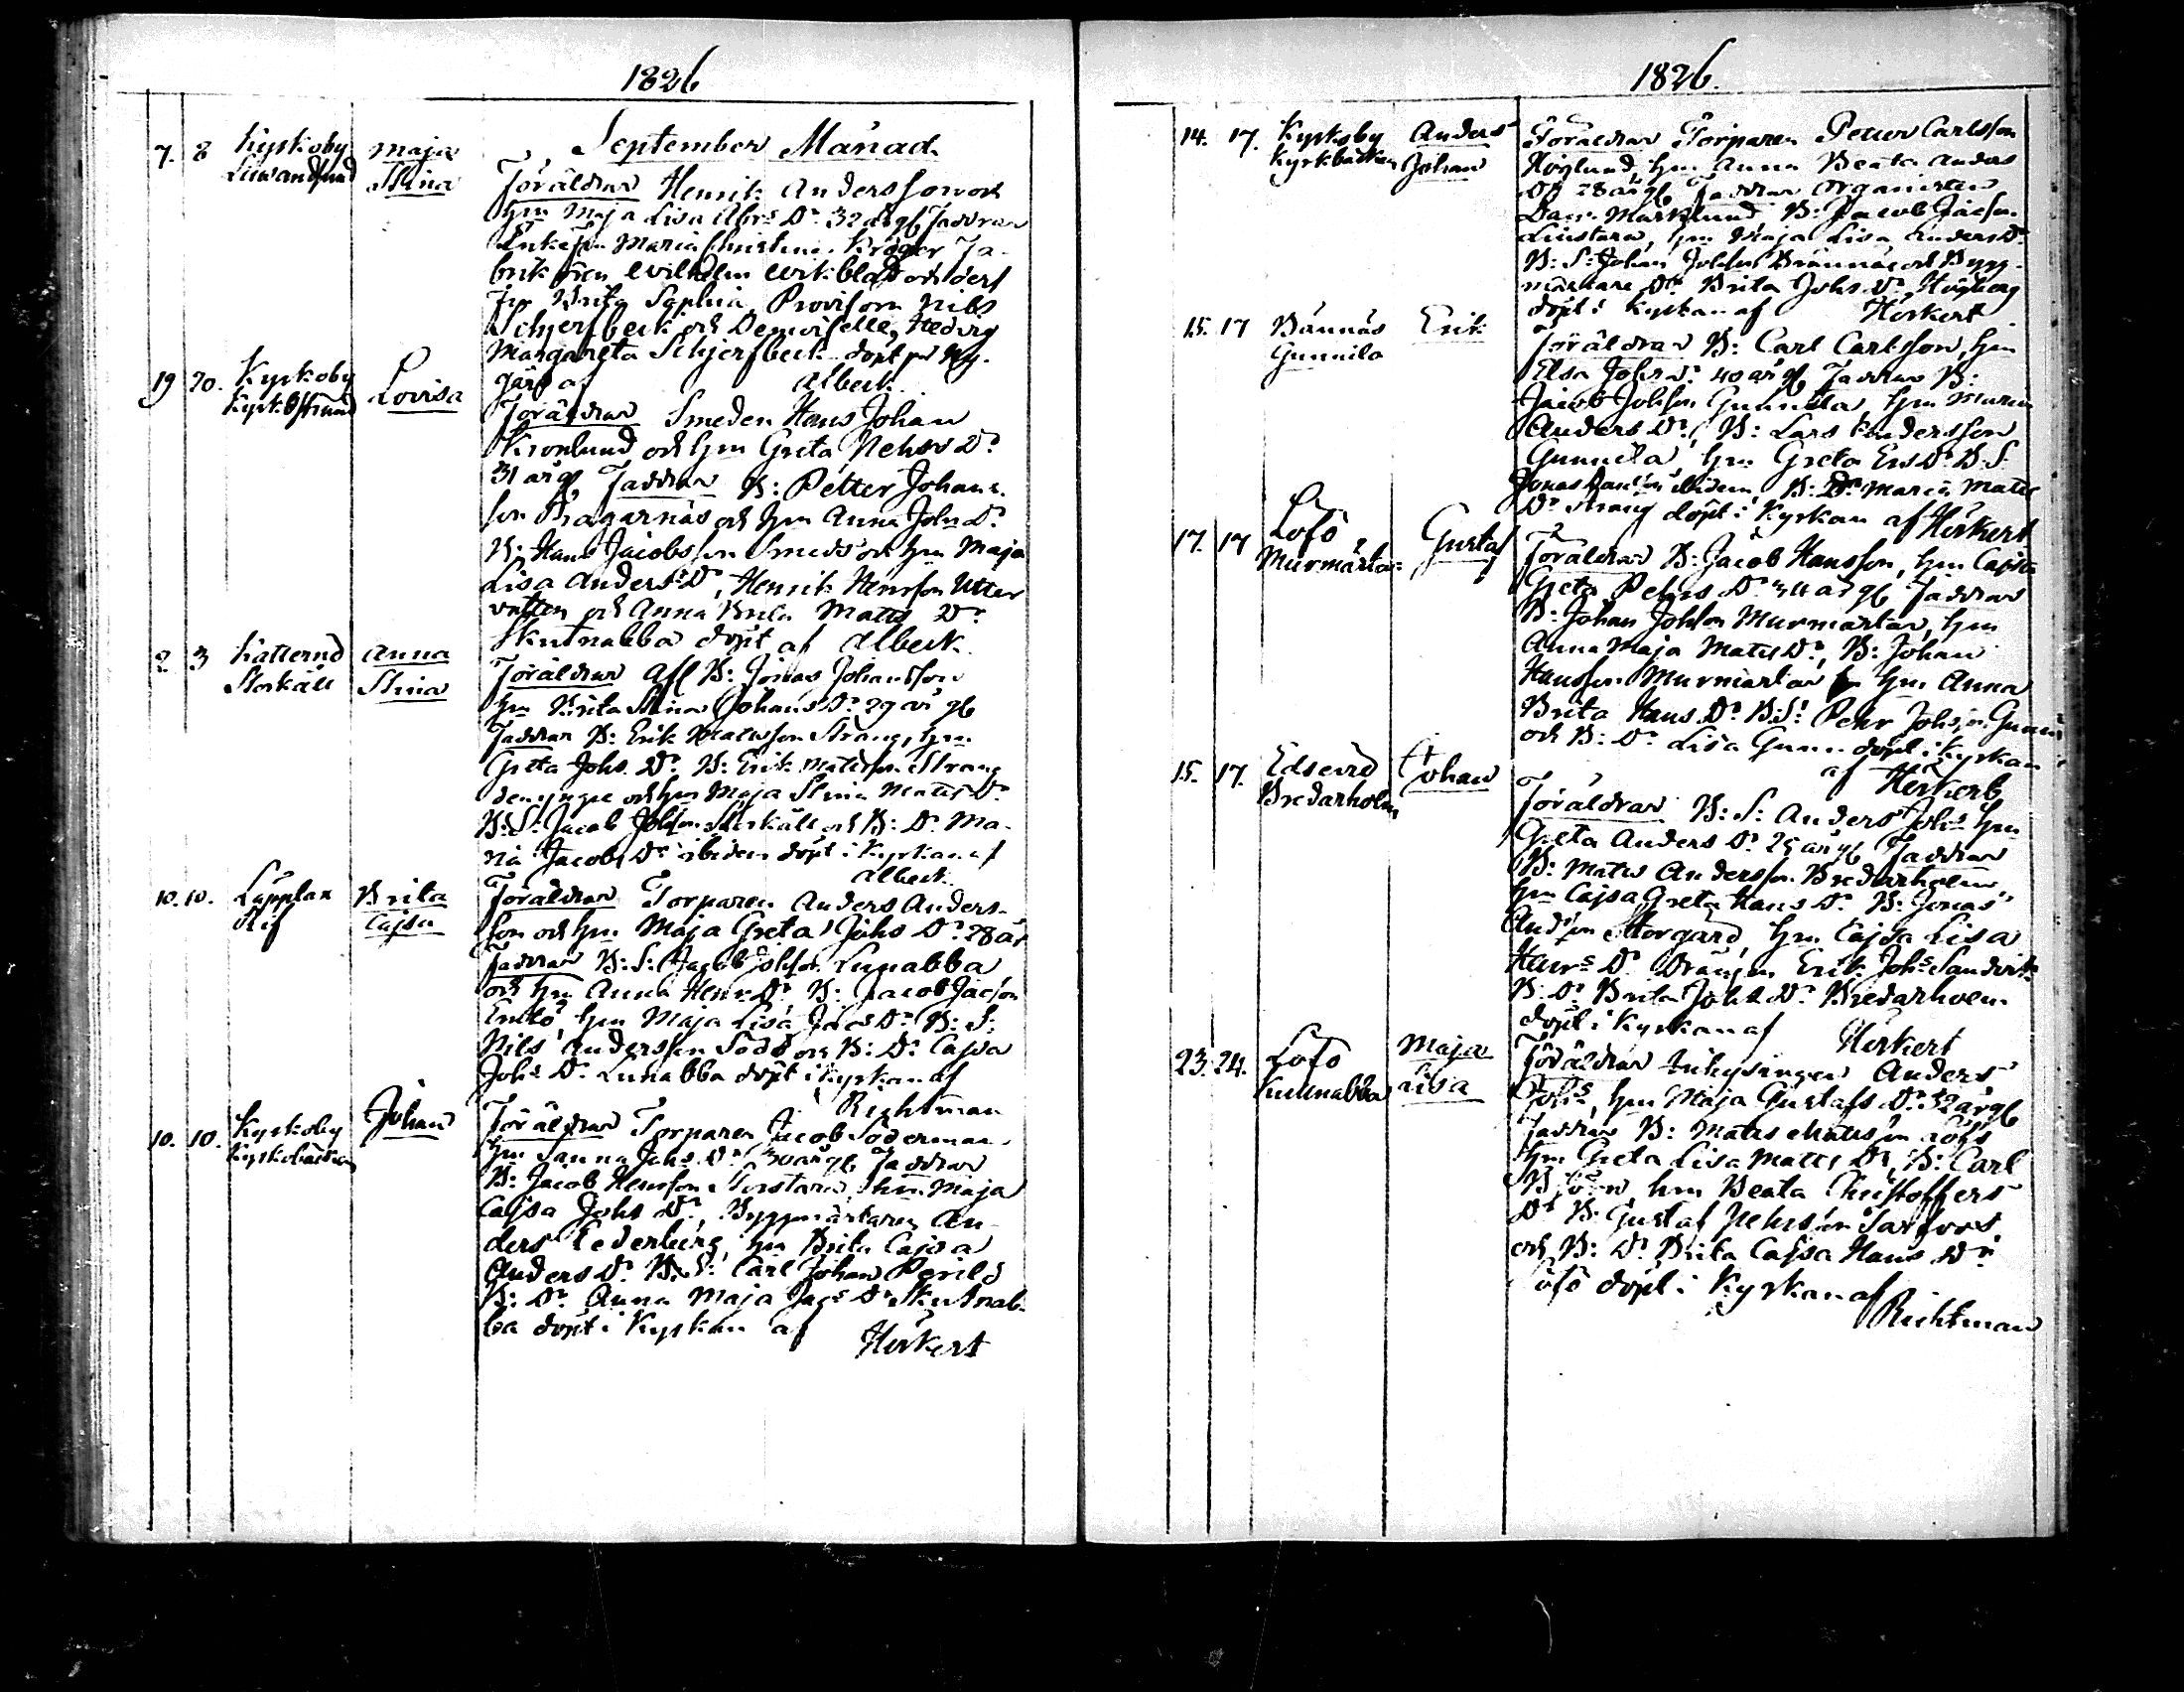 1826
September Månad
7. 8 Kyrkoby Maja
Stina
Föräldrar Henrik Andersson och
hu Maja Lisa Abrs Dr 32 år gl Faddrar
Enkefru Maria Christina Kröger Fa-
brikören Wilhelm Wikblad och dess
fru Brita Sophia, Provisorn Nils
Schjerfbeck och Demoiselle, Hedvig
Margareta Schjerfbeck döpt på Ny-
af Albeck
19 20. Kyrkoby Lovisa
Föräldrar Smeden Hans Johan
Kronlund och hu Greta Nehrs Dr
31 år gl, Faddrar B: Petter Johans-
son Dragarnäs och hu Anna Johs Dr
B: Hans Jacobsson Smeds och hu Maja
Lisa Anders Dr, Henrik Henrsson Utter
och Anna Brita Matts Dr
Skutnabba döpt af Albeck
2. 3 Katternö Anna
Storkäll Stina
Föräldrar Afl B: Jonas Johansson
hu Brita Stina Johans Dr 29 år gl
Faddrar B: Erik Matsson Strang, hu
Greta Johs Dr B: Erik Matsson Strang
den yngre och hu Maja Stina Matts Dr
B: S: Jacob Johsson Storkäll och B: Dr Ma-
ria Jacobs Dr ibidem döpt i Kyrkan af
Albeck
10. 10. Lappfax Brita
Slif Cajsa
Föräldrar Torparen Anders Anders-
son och hu Maja Greta Johs Dr 28 år
Faddrar B: S: Jacob Johsson Lunabba
och hu Anna Henr Dr, B: Jacob Jacsson
hu Maja Lisa Jacs Dr B: S:
Nils Andersson Södö och B: Dr Cajsa
Johs Dr Lunabba döpt i Kyrkan af
Richtman
10. 10. Kyrkoby Johan
Kyrkobäcken
Föräldrar Torparen Jacob Söderman
hu Sanna Johs Dr 30 år gl Faddrar
B: Jacob Henrsson hu Maja
Cajsa Johs Dr, Byggmästaren An-
ders Cederberg, hu Brita Cajsa
Anders Dr B: S: Carl Johan Perild
B: Dr Anna Maja Jacs Dr Skutnab-
ba döpt i Kyrkan af
Herkert
1826.
14. 17. Kyrkoby Anders
Kyrkbäcken Johan
Föräldrar Torparen Petter Carlsson
Höglund, hu Anna Beata Anders
Dr 28 år gl Faddrar Organisten
Marklund B: Jacob Jacsson
hu Maja Lisa Anders Dr
B: S: Johan Johsson Brännäs och Bygg-
mästare Dr Brita Johs Dr Högberg
döpt i Kyrkan af Herkert
15. 17 Bännäs Erik
Gunnila
Föräldrar B: Carl Carlsson, hu
Elsa Johs Dr 40 år gl Faddrar B:
Jacob Johsson Gunnila, hu Maria
Anders Dr, B: Lars Andersson
Gunnila, hu Greta Ers Dr B: S:
Jonas ibidem, B: Dr Maria Matts
Dr Strang döpt i Kyrkan af Herkert
17. 17 Lofö Gustaf
Murmästar
Föräldrar B: Jacob Hansson, hu Cajsa
Greta Pehrs Dr 34 år gl Faddrar
B: Johan Johsson Murmästar, hu
Anna Maja Matts Dr, B: Johan
Hansson Murmästar hu Anna
Brita Hans Dr B: S: Pehr Johsson
och B: Dr Lisa döpt i Kyrkan
af Herkert
15. 17. Edsevö Johan
Bredarholm
Föräldrar B: S: Anders Johs hu
Greta Anders Dr 25 år gl Faddrar
B: Matts Andersson Bredarholm,
hu Cajsa Greta Hans Dr B: Jonas
Andsson Storgård, hu Cajsa Lisa
Henrs Dr Drängen Erik Johs Sandvik
B: Dr Brita Johs Dr Bredarholm
döpt i Kyrkan af Herkert
23. 24. Lofö Maja
Kullnabba Lisa
Föräldrar Inhysingen Anders
Johs, hu Maja Gustafs Dr 32 år gl
Faddrar B: Matts Mattsson Lofö
hu Greta Lisa Matts Dr, B: Carl
Björn, hu Beata Christoffers
Dr B: Gustaf Pehrsson Sarfvos
och B: Dr Brita Cajsa Hans Dr
Lofö döpt i Kyrkan af
Richtman